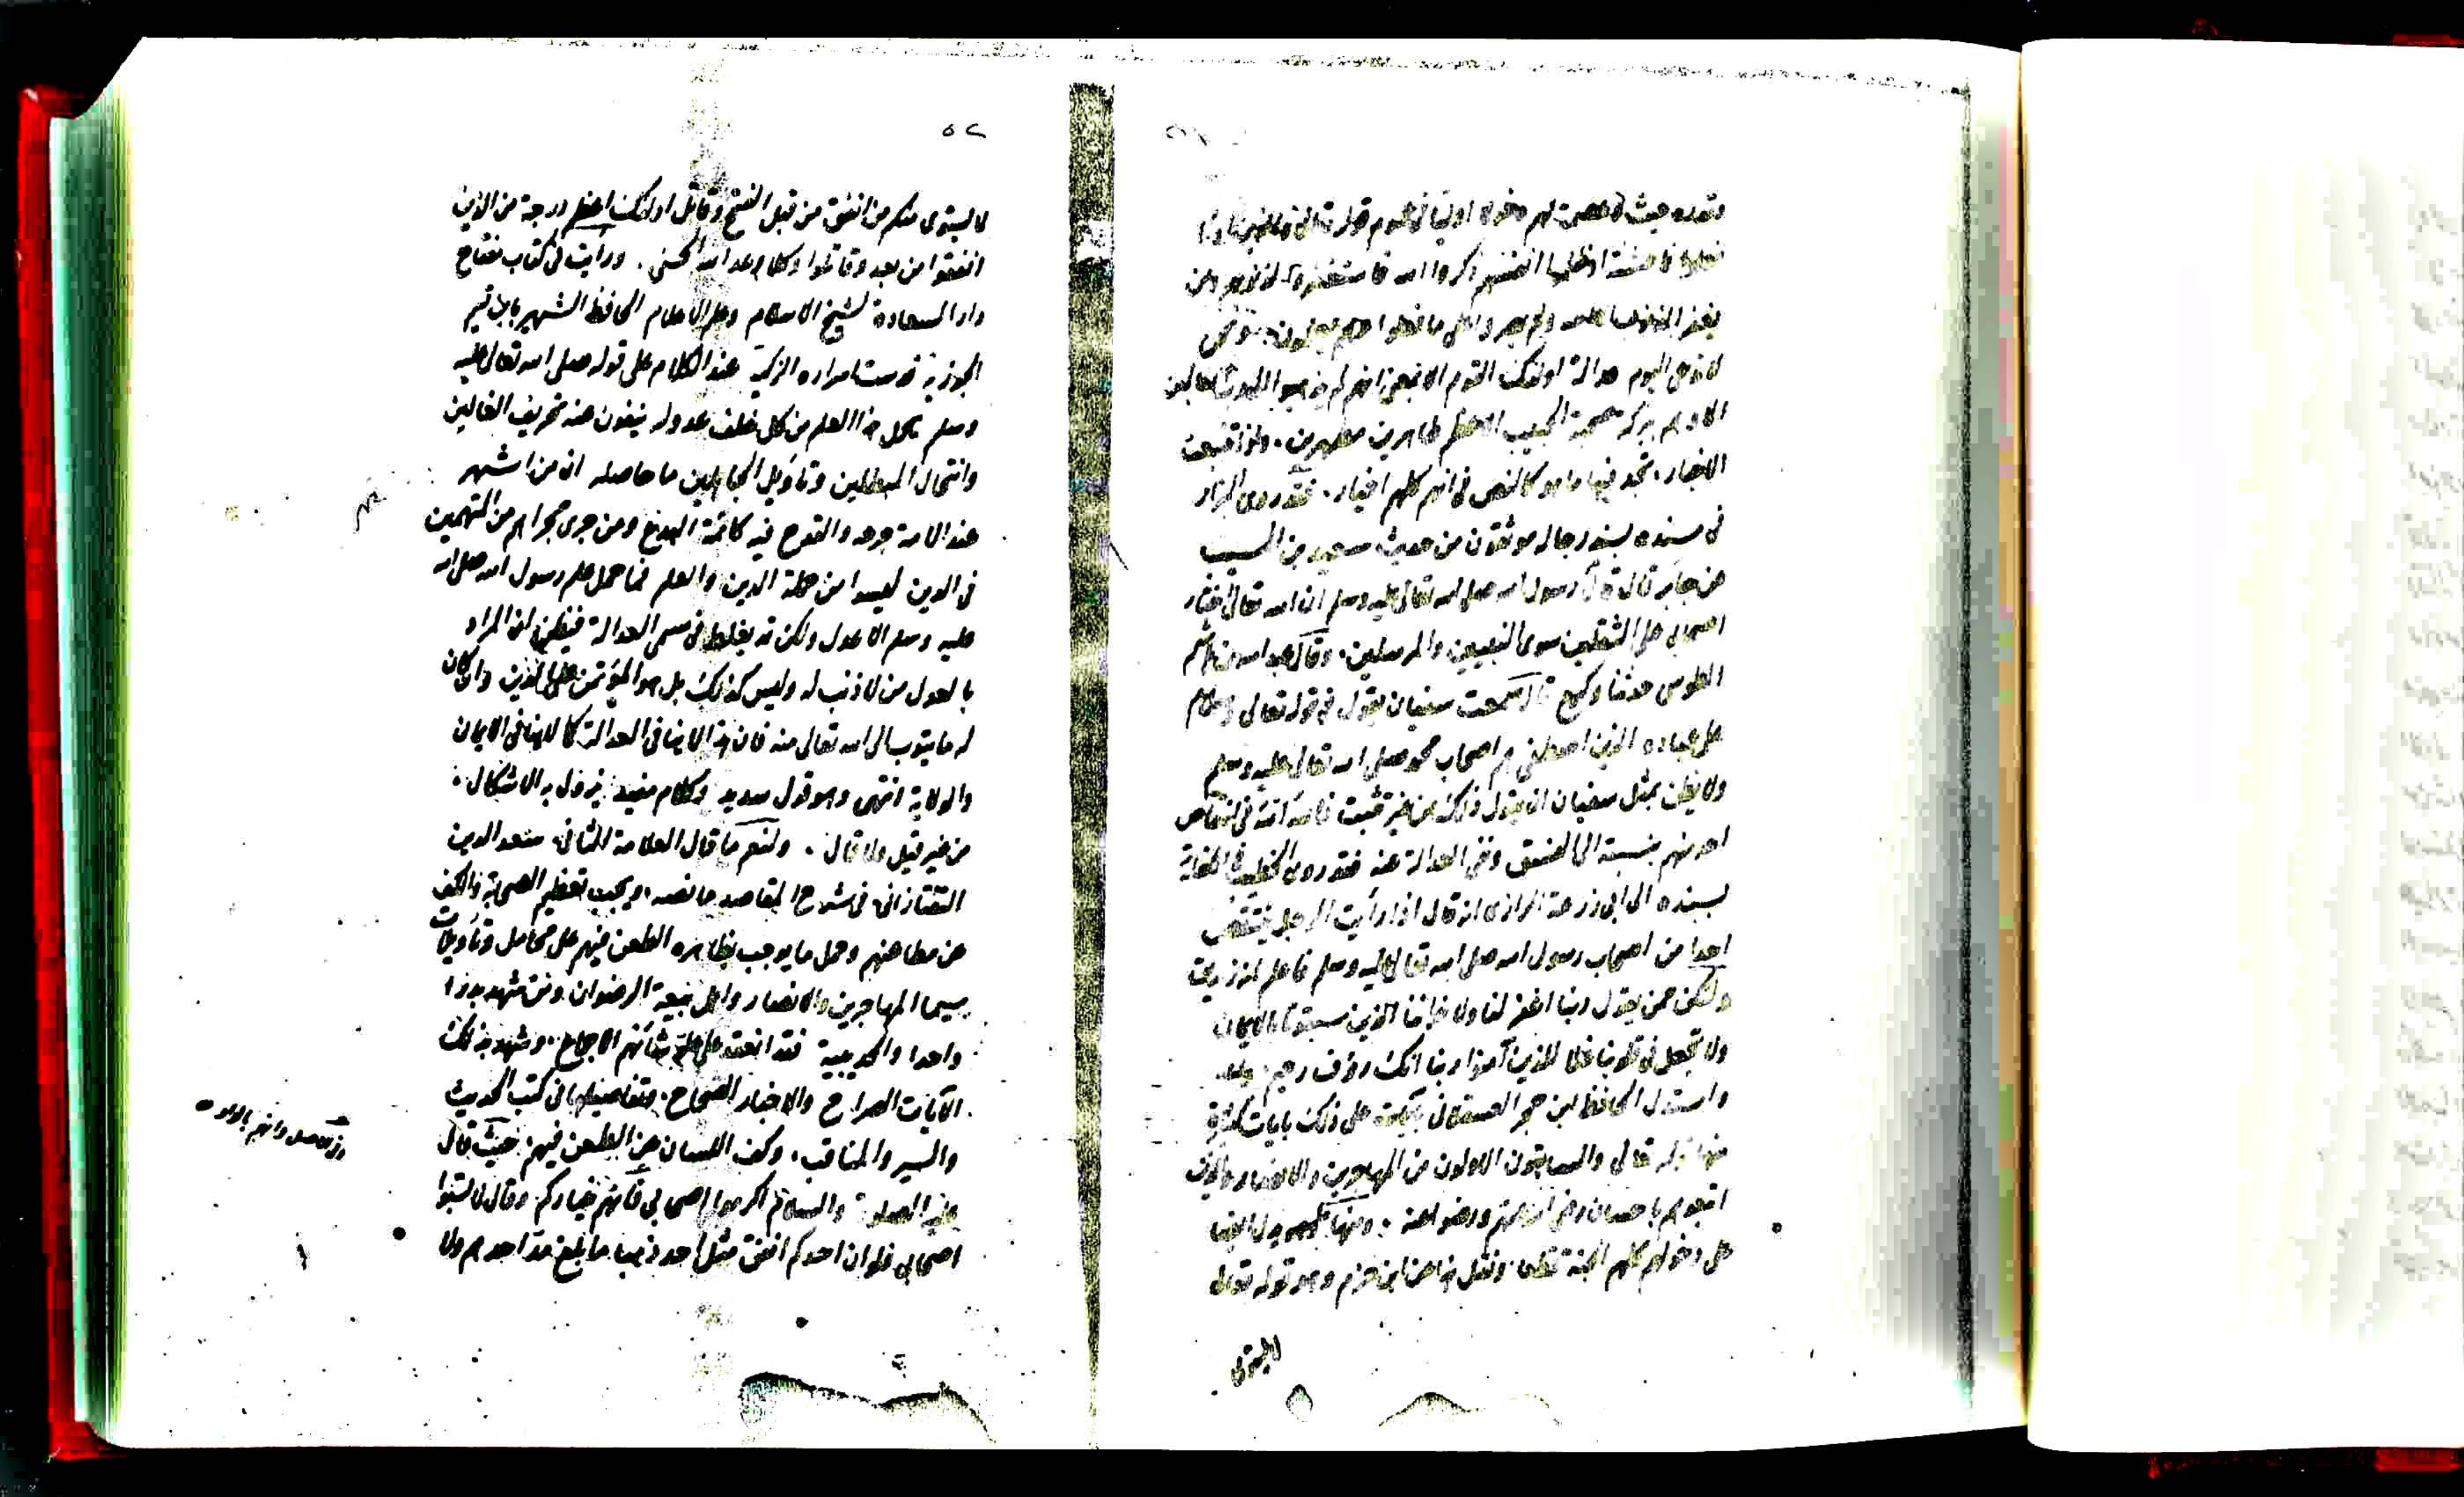 فعلوا فاحشة او ظلموا انفسهم ذكروا الله فاستغفروا لذنوبهم ومن
يغفر الذنوب الا الله ولم يصروا على ما فعلوا وهم يعلمون
الا وهم ببركة صحبة الحبيب الاعظم طاهرين مطهرين
الاخبار تجد فيها ما هو كالنص في انهم كلهم اخيار فقد روى البزار
في مسنده بسند رجاله موثقون من حديث سعيد بن المسيب
عن جابر قال قال رسول الله صلى الله تعالى عليه وسلم ان الله تعالى اختار
اصحابي على الثقلين سوى النبيين والمرسلين وقال عبد الله بن هاشم
الطوسي حدثنا وكيع قال سمعت سفيان يقول في قوله تعالى وسلام
على عباده الذين اصطفى هم اصحاب محمد صلى الله تعالى عليه وسلم
ولا يظن بمثل سفيان ان يقول ذلك من غير تثبت
احد منهم بنسبته الى الفسق ونفى العدالة عنه فقد روى الخطيب في الكفاية
بسنده الى ابي زرعة الرازي انه قال اذا رأيت الرجل ينتقص
احدا من اصحاب رسول الله صلى الله تعالى عليه وسلم فاعلم انه زنديق
ولكن ممن يقول ربنا اغفر لنا ولاخواننا الذين سبقونا بالايمان
ولا تجعل في قلوبنا غلا للذين آمنوا ربنا انك رؤف رحيم
واستدل الحافظ ابن حجر العسقلاني على ذلك بايات كثيرة
منها قوله تعالى والسابقون الاولون من المهاجرين والانصار والذين
اتبعوهم باحسان رضي الله عنهم ورضوا عنه ومنها
على دخولهم كلهم الجنة قطعا ونقل هذا عن ابن حزم وهو قوله تعالى
لا يستوى
٥٢
لا يستوى منكم من انفق من قبل الفتح وقاتل اولئك اعظم درجة من الذين
انفقوا من بعد وقاتلوا وكلا وعد الله الحسنى . ورايت في كتاب مفتاح
دار السعادة لشيخ الاسلام وعلم الاعلام الحافظ الشهير بابن قيم
الجوزية قدست اسراره الزكية عند الكلام على قوله صلى الله تعالى عليه
وسلم يحمل هذا العلم من كل خلف عدوله ينفون عنه تحريف الغالين
وانتحال المبطلين وتأويل الجاهلين ما حاصله ان من اشتهر
عند الامة جرحه والقدح فيه كائمة البدع ومن جرى مجراهم من المتهمين
في الدين ليسوا من حملة الدين والعلم فما حمل علم رسول الله صلى الله
عليه وسلم الا عدول ولكن قد يغلط في مسمى العدالة فيظن ان المراد
بالعدل من لا ذنب له وليس كذلك بل هو المؤتمن على الدين وان كان
له ما يتوب الى الله تعالى منه فان هذا لا ينافي العدالة كما لا ينافي الايمان
والولاية انتهى وهو قول سديد وكلام مفيد يزول به الاشكال .
من غير قيل ولا قال . ولنعم ما قال العلامة الثاني سعد الدين
التفتازاني في شرح المقاصد ما نصه ويجب تعظيم الصحابة والكف
عن مطاعنهم وحمل ما يوجب بظاهره الطعن فيهم على محامل وتأويلات
سيما المهاجرين والانصار واهل بيعة الرضوان ومن شهد بدرا
واحدا والحديبية فقد انعقد على علو شأنهم الاجماع . وشهد بذلك
الآيات الصراح والاخبار الصحاح . وتفاصيلها في كتب الحديث
والسير والمناقب . وكف اللسان عن الطعن فيهم حيث قال
عليه الصلوة والسلام اكرموا اصحابي فانهم خياركم وقال لا تسبوا
اصحابي فلو ان احدكم انفق مثل احد ذهبا ما بلغ مد احدهم ولا